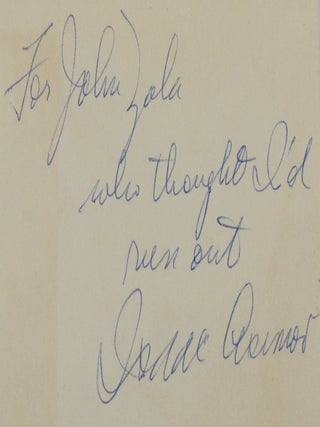 For John Zola
who thought I'd
run out
Isaac Asimov